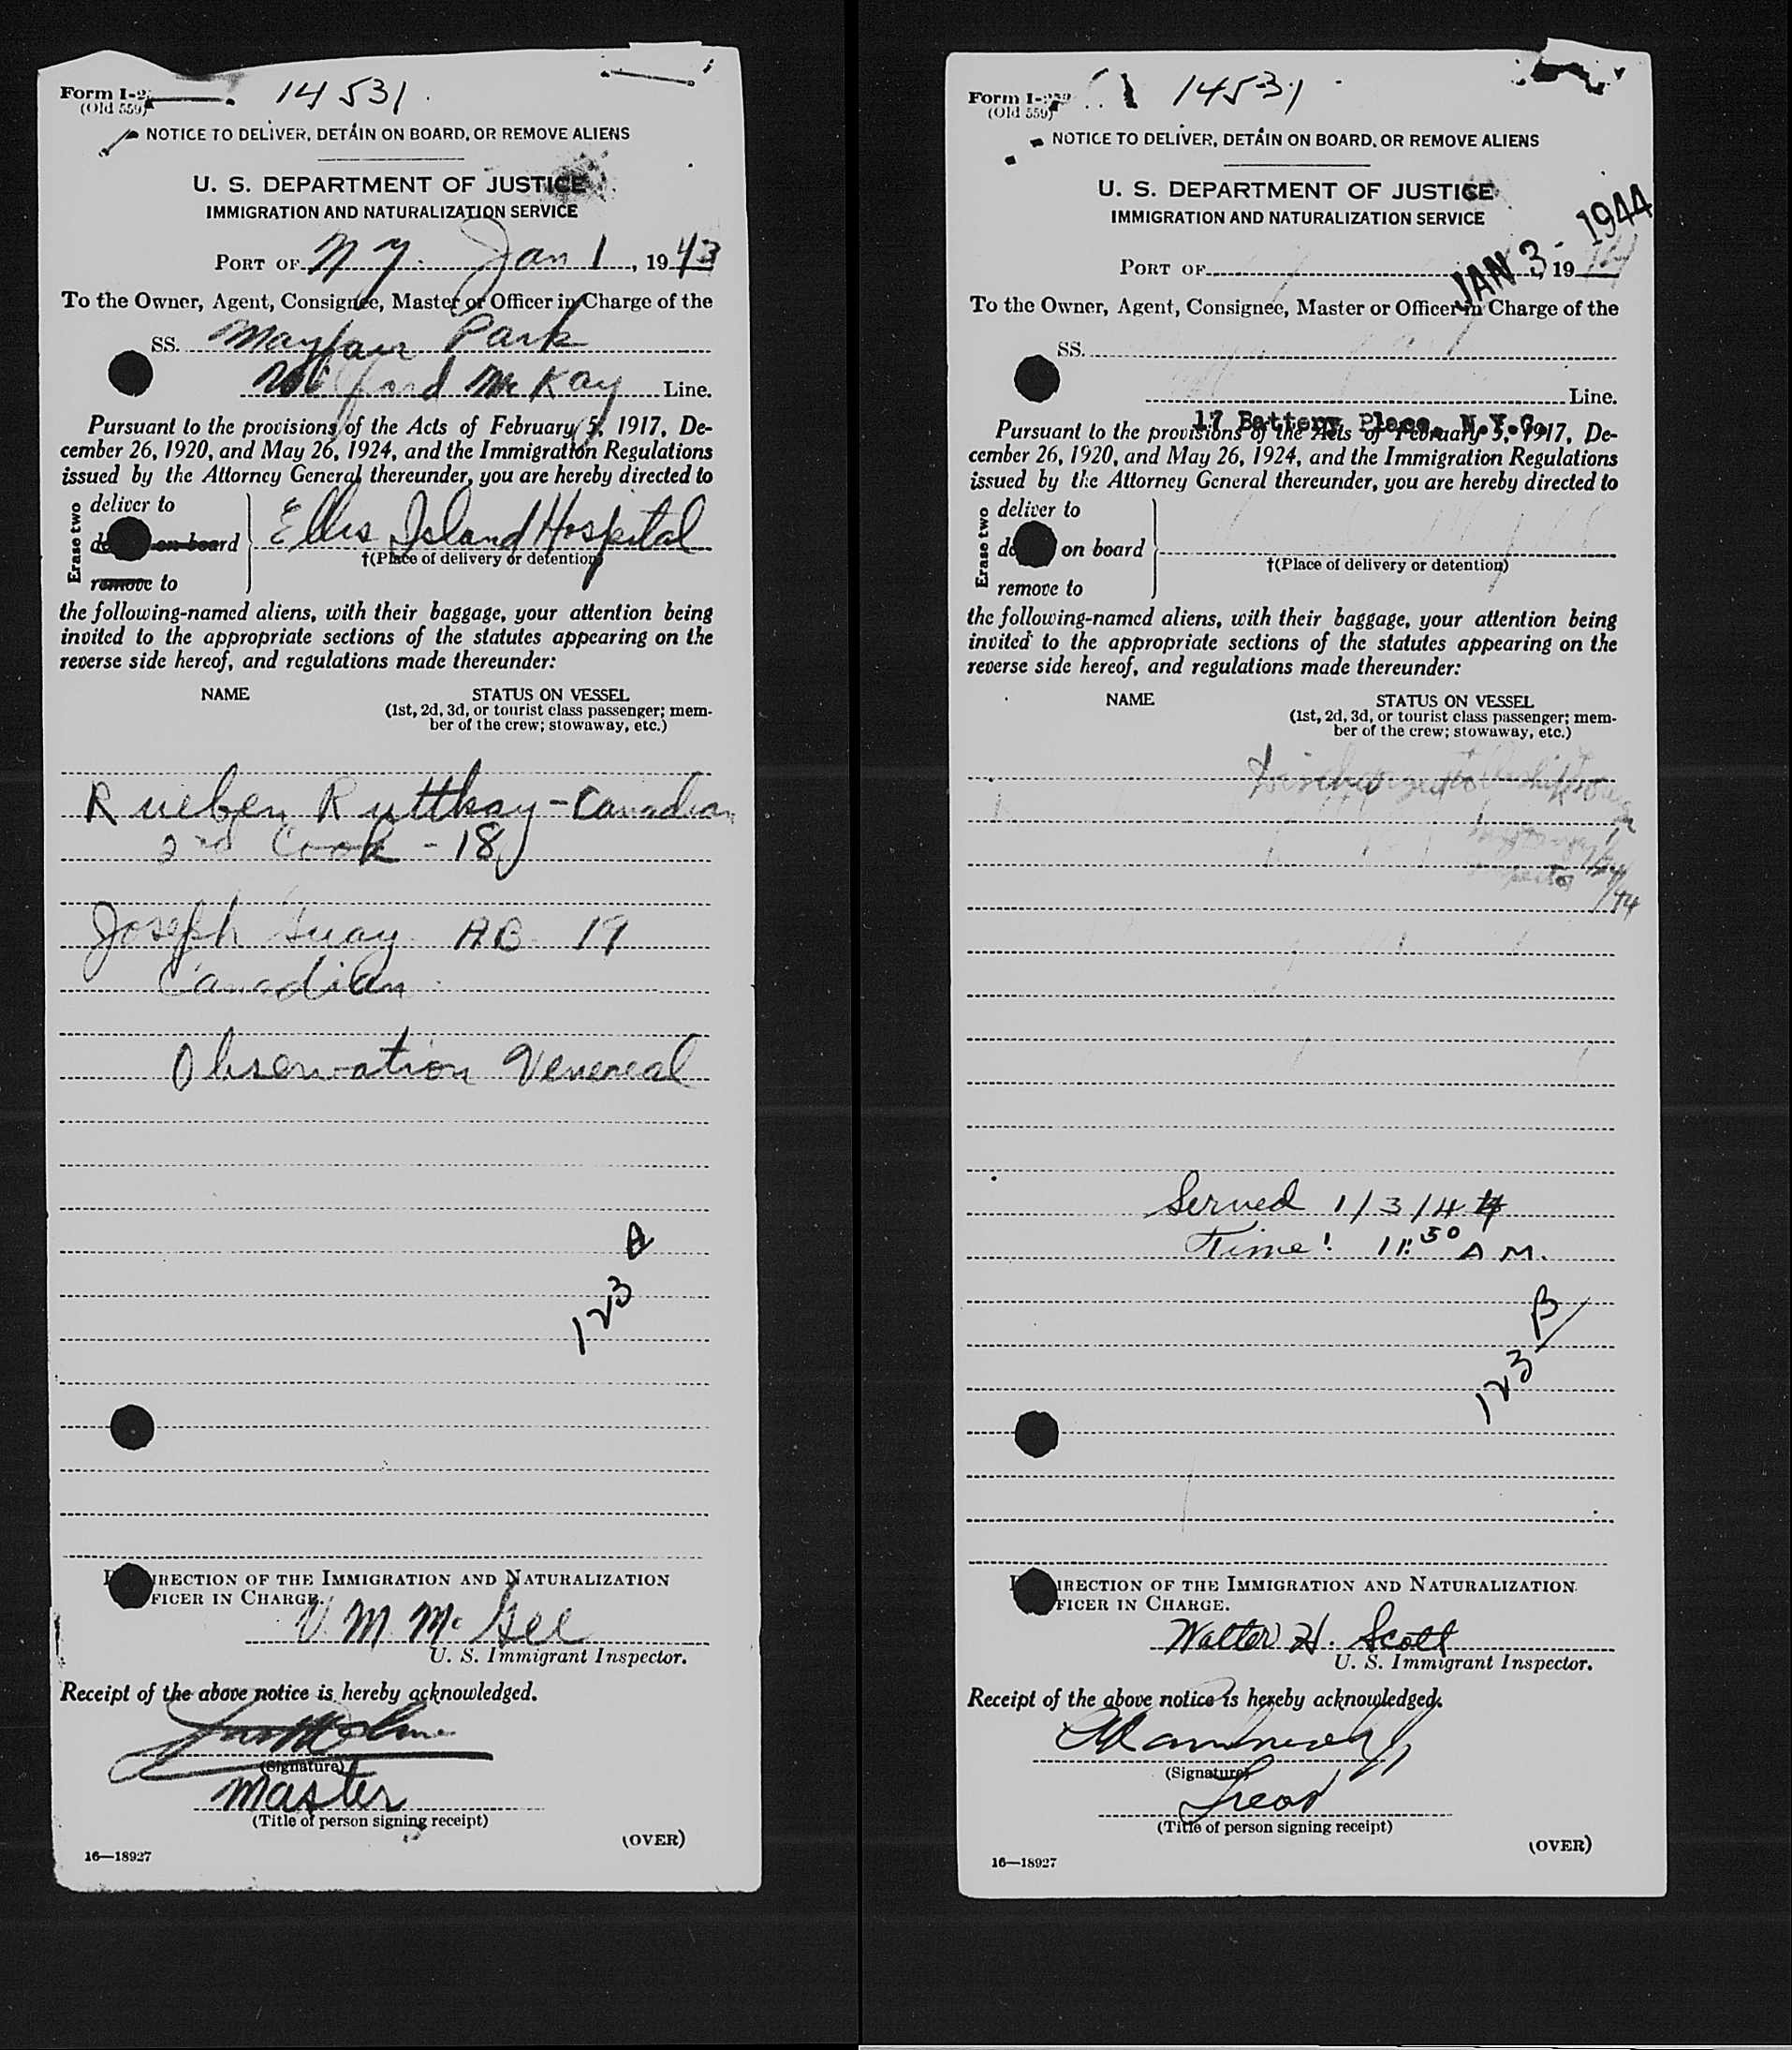 Form I-2
(Old 559)
14531
NOTICE TO DELIVER, DETAIN ON BOARD, OR REMOVE ALIENS
U. S. DEPARTMENT OF JUSTICE
IMMIGRATION AND NATURALIZATION SERVICE
PORT OF N Y. Jan 1, 1943
To the Owner, Agent, Consignee, Master or Officer in Charge of the
SS. Mayfair Park
McKay Line.
Pursuant to the provisions of the Acts of February 5, 1917, De-
cember 26, 1920, and May 26, 1924, and the Immigration Regulations
issued by the Attorney General thereunder, you are hereby directed to
Erase two
deliver to
on board
remove to
Ellis Island Hospital
†(Place of delivery or detention)
the following-named aliens, with their baggage, your attention being
invited to the appropriate sections of the statutes appearing on the
reverse side hereof, and regulations made thereunder:
NAME STATUS ON VESSEL
(1st, 2d, 3d, or tourist class passenger; mem-
ber of the crew; stowaway, etc.)
Rueben Ruttkay - Canadian
2nd Cook - 18
Joseph Guay AB 19
Canadian
Observation Venereal
A
123
IRECTION OF THE IMMIGRATION AND NATURALIZATION
FICER IN CHARGE.
V. M. McGee
U. S. Immigrant Inspector.
Receipt of the above notice is hereby acknowledged.
(Signature)
Master
(Title of person signing receipt)
(OVER)
16—18927
Form I-259
(Old 559)
14531
NOTICE TO DELIVER, DETAIN ON BOARD, OR REMOVE ALIENS
U. S. DEPARTMENT OF JUSTICE
IMMIGRATION AND NATURALIZATION SERVICE
JAN 3 - 1944
PORT OF , 19
To the Owner, Agent, Consignee, Master or Officer in Charge of the
SS.
Line.
17 Battery Place, N.Y.C.
Pursuant to the provisions of the Acts of February 5, 1917, De-
cember 26, 1920, and May 26, 1924, and the Immigration Regulations
issued by the Attorney General thereunder, you are hereby directed to
Erase two
deliver to
on board
remove to
†(Place of delivery or detention)
the following-named aliens, with their baggage, your attention being
invited to the appropriate sections of the statutes appearing on the
reverse side hereof, and regulations made thereunder:
NAME STATUS ON VESSEL
(1st, 2d, 3d, or tourist class passenger; mem-
ber of the crew; stowaway, etc.)
Served 1/3/44
Time! 11:50 A M.
B
123
IRECTION OF THE IMMIGRATION AND NATURALIZATION
FICER IN CHARGE.
Walter H. Scott
U. S. Immigrant Inspector.
Receipt of the above notice is hereby acknowledged.
(Signature)
(Title of person signing receipt)
(OVER)
16—18927